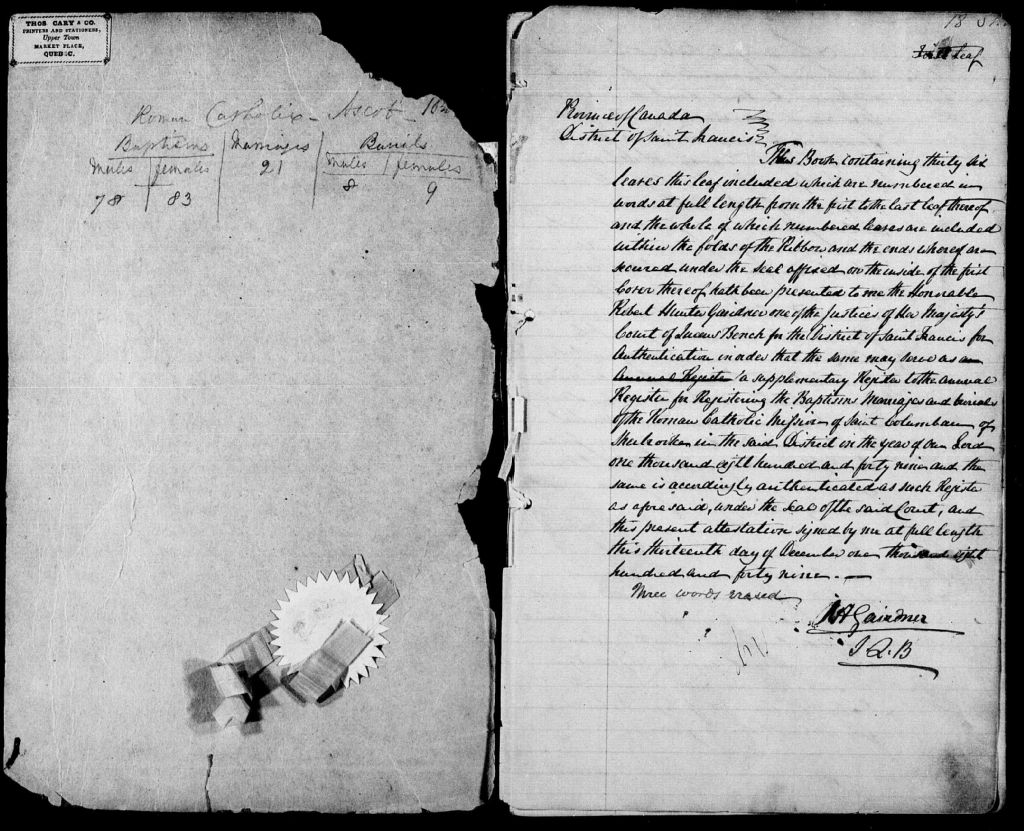 THOS CARY & CO.
PRINTERS AND STATIONERS,
Upper Town
MARKET PLACE,
QUEBEC.
Roman Catholic - Ascot
Baptisms | Marriages | Burials
Males | females | 21 | males | females
78 | 83 | 8 | 9
18
Leaf
Province of Canada
District of Saint Francis
This Book containing thirty six
leaves this leaf included which are numbered in
words at full length from the first to the last leaf thereof
and the whole of which numbered leaves are included
within the folds of the Ribbon and the ends whereof are
secured under the seal affixed on the inside of the first
Cover thereof hath been presented to me the Honorable
Robert Hunter Gairdner one of the Justices of Her Majesty's
Court of Queens Bench for the District of Saint Francis for
Authentication in order that the same may serve as an
Annual Register a supplementary Register to the annual
Register for Registering the Baptisms Marriages and burials
of the Roman Catholic Mission of Saint Columban of
Sherbrooke in the said District in the year of our Lord
one thousand eight hundred and forty nine and the
same is accordingly authenticated as such Register
as afore said, under the seal of the said Court, and
this present attestation signed by me at full length
this thirteenth day of December one thousand eight
hundred and forty nine. —
Three words erased
RH Gairdner
J. Q. B